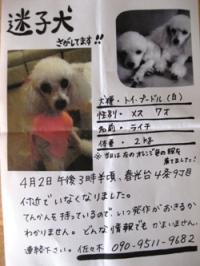 迷子犬
さがしてます!!
犬種・トイ・プードル(白)
性別・メス 7才
名前・ライチ
体重・2kg
※当日は左のオレンジ色の服を
着てました!
4月2日午後3時半頃、春光台4条9丁目
付近でいなくなりました。
てんかんを持っているので、いつ発作がおきるか
わかりません。どんな情報でもかまいません。
連絡下さい。佐々木 090-9511-9682